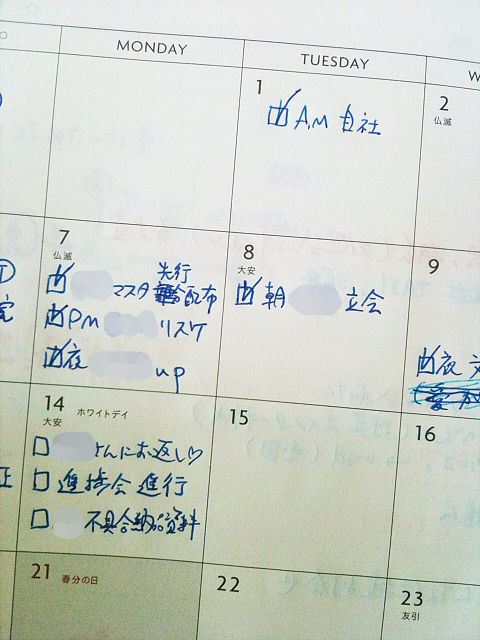 MONDAY
TUESDAY
1
AM 自社
2
仏滅
7
仏滅
マスタ 先行配布
PM リスケ
夜 up
8
大安
朝 立会
9
夜
14 ホワイトデイ
大安
さんにお返し♡
進捗会 進行
不具合納品資料
15
16
21 春分の日
22
23
友引